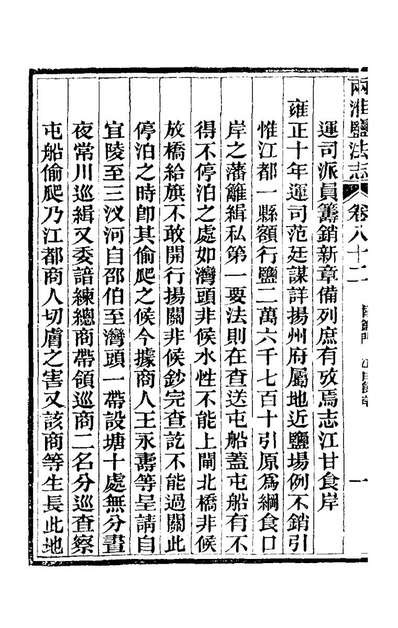 兩淮鹽法志
卷八十二
一
運司派員籌銷新章備列庶有攷焉志江甘食岸
雍正十年運司范廷謀詳揚州府屬地近鹽場例不銷引
惟江都一縣額行鹽二萬六千七百十引原爲綱食口
岸之藩籬緝私第一要法則在查送屯船蓋屯船有不
得不停泊之處如灣頭非候水性不能上閘北橋非候
放橋給旗不敢開行揚關非候鈔完查訖不能過關此
停泊之時卽其偷爬之候今據商人王永壽等呈請自
宜陵至三汊河自邵伯至灣頭一帶設塘十處無分晝
夜常川巡緝又委諳練總商帶領巡商二名分巡查察
屯船偷爬乃江都商人切膚之害又該商等生長此地